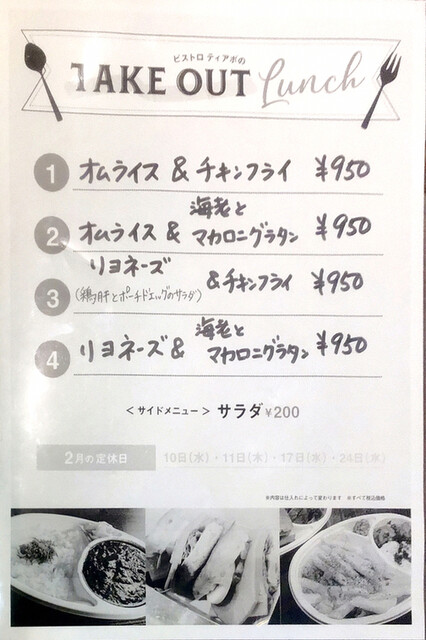 ビストロ ティアボの
TAKE OUT Lunch
1 オムライス & チキンフライ ¥950
2 オムライス & 海老と マカロニグラタン ¥950
3 リヨネーズ (鶏肝とポーチドエッグのサラダ) & チキンフライ ¥950
4 リヨネーズ & 海老と マカロニグラタン ¥950
<サイドメニュー> サラダ ¥200
2月の定休日 10日(水)・11日(木)・17日(水)・24日(水)
※内容は仕入れによって変わります ※すべて税込価格